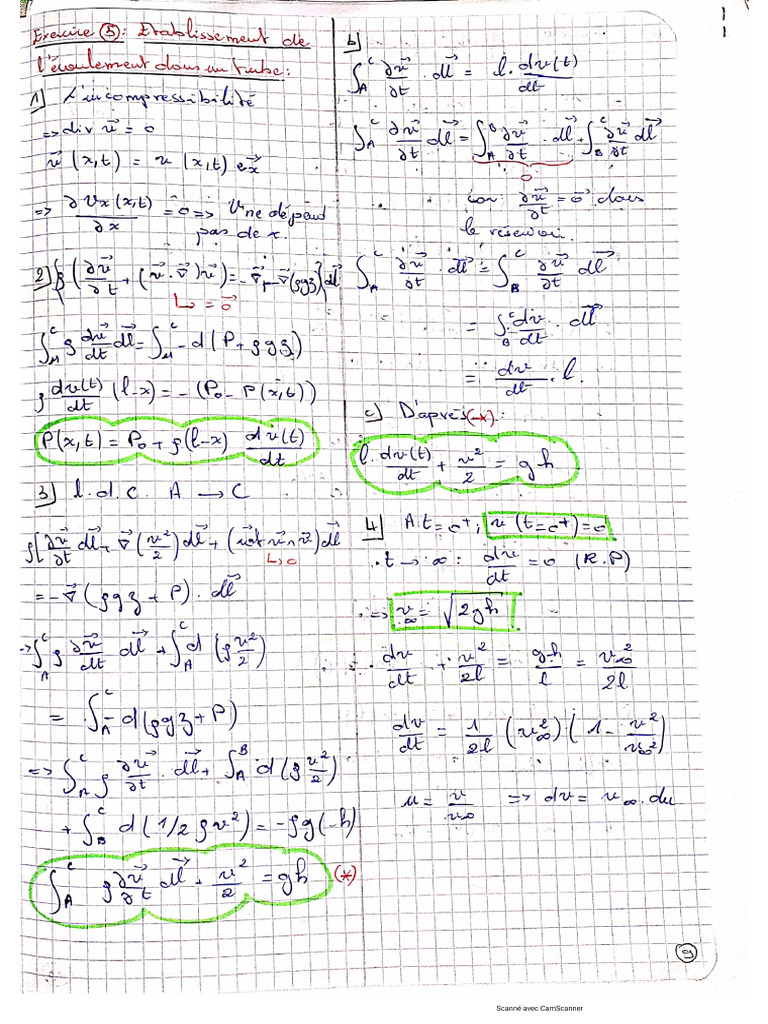 Exercice (5): Etablissement de
l'écoulement dans un tube:
1) L'incompressibilité
=> div v⃗ = 0
v⃗ (x,t) = v (x,t) e⃗x
=> ∂Vx(x,t)/∂x = 0 => V ne dépend
pas de x.
2) ρ(∂v⃗/∂t + (v⃗·∇⃗)v⃗) = -∇⃗p - ∇⃗(ρgz)} dl⃗
L> = 0⃗
∫_M^C ρ dv⃗/dt dl⃗ = ∫_M^C -d(P+ρgz)
ρ dv(t)/dt (l-x) = -(P₀ - P(x,t))
P(x,t) = P₀ + ρ(l-x) dv(t)/dt
3) l.d.c. A → C
ρ[∂v⃗/∂t dl⃗ + ∇⃗(v²/2)dl⃗ + (rot v⃗ ∧ v⃗)dl⃗
L> 0
= -∇⃗(ρgz + P). dl⃗
=> ∫_A^C ρ ∂v⃗/∂t dl⃗ + ∫_A^C d(ρv²/2)
= ∫_A^C -d(ρgz+P)
=> ∫_A^C ρ ∂v⃗/∂t . dl⃗ + ∫_A^B d(ρv²/2)
+ ∫_B^C d(1/2 ρv²) = -ρg(-h)
∫_A^C ρ ∂v⃗/∂t dl⃗ + v²/2 = gh (*)
b)
∫_A^C ∂v⃗/∂t . dl⃗ = l. dv(t)/dt
∫_A^C ∂v⃗/∂t dl⃗ = ∫_A^B ∂v⃗/∂t . dl⃗ + ∫_B^C ∂v⃗/∂t dl⃗
0
car ∂v⃗/∂t = 0⃗ dans
le réservoir.
∫_A^C ∂v⃗/∂t . dl⃗ = ∫_B^C ∂v⃗/∂t dl⃗
= ∫_B^C dv/dt . dl⃗
= dv/dt . l.
c) D'après (*):
l. dv(t)/dt + v²/2 = gh
4) A t=0⁺, v(t=0⁺)=0
t → ∞ : dv/dt = 0 (R.P)
=> v∞ = √2gh
dv/dt + v²/2l = gh/l = v∞²/2l
dv/dt = 1/2l (v∞²)(1 - v²/v∞²)
u = v/v∞ => dv = v∞.du
9
Scanné avec CamScanner